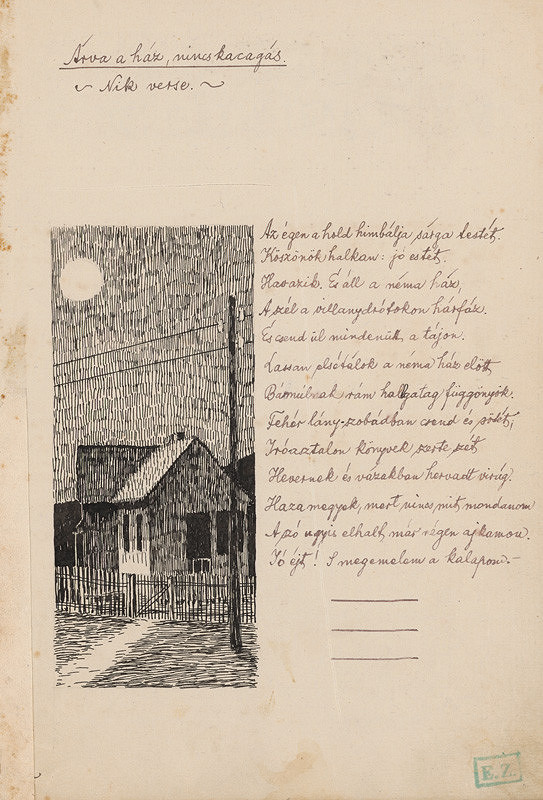 Árva a ház, nincs kacagás.
~ Nik verse. ~
Az égen a hold himbálja sárga testét.
Köszönök halkan: jó estét.
Havazik. És áll a néma ház,
A szél a villanydrótokon hárfáz.
És csend ül mindenütt a tájon.
Lassan elsétálok a néma ház előtt
Bámulnak rám hallgatag függönyök.
Fehér lány-szobádban csend és sötét,
Íróasztalon könyvek szerte szét
Hevernek és vázákban hervadt virág.
Haza megyek, mert nincs mit mondanom
A szó ugyis elhalt már régen ajkamon.
Jó éjt! S megemelem a kalapom.-
E.Z.